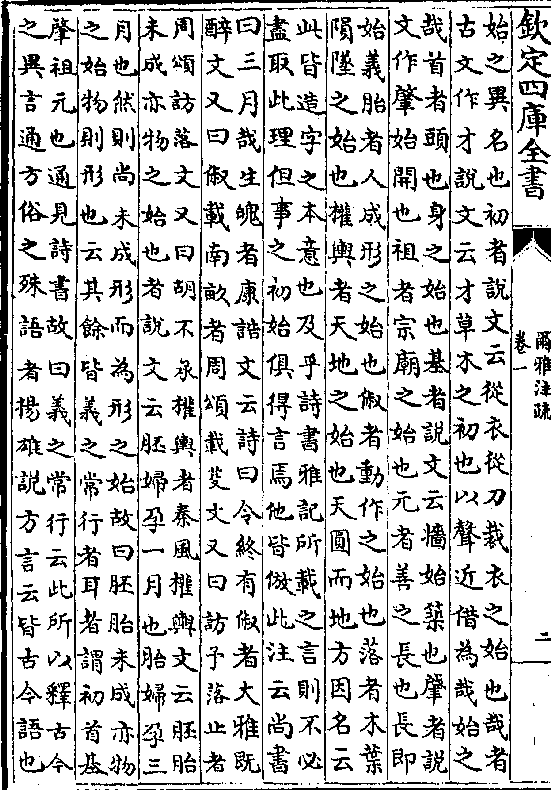 欽定四庫全書
爾雅注疏
卷一
二
始之異名也初者說文云從衣從刀裁衣之始也哉者
古文作才說文云才草木之初也以聲近借為哉始之
哉首者頭也身之始也基者說文云牆始築也肇者說
文作肈始開也祖者宗廟之始也元者善之長也長即
始義胎者人成形之始也俶者動作之始也落者木葉
隕墜之始也權輿者天地之始也天圓而地方因名云
此皆造字之本意也及乎詩書雅記所載之言則不必
盡取此理但事之初始俱得言焉他皆倣此注云尚書
曰三月哉生魄者康誥文云詩曰令終有俶者大雅既
醉文又曰俶載南畝者周頌載芟文又曰訪予落止者
周頌訪落文又曰胡不承權輿者秦風權輿文云胚胎
未成亦物之始也者說文云胚婦孕一月也胎婦孕三
月也然則尚未成形而為形之始故曰胚胎未成亦物
之始物則形也云其餘皆義之常行者耳者謂初首基
肇祖元也通見詩書故曰義之常行云此所以釋古今
之異言通方俗之殊語者揚雄說方言云皆古今語也